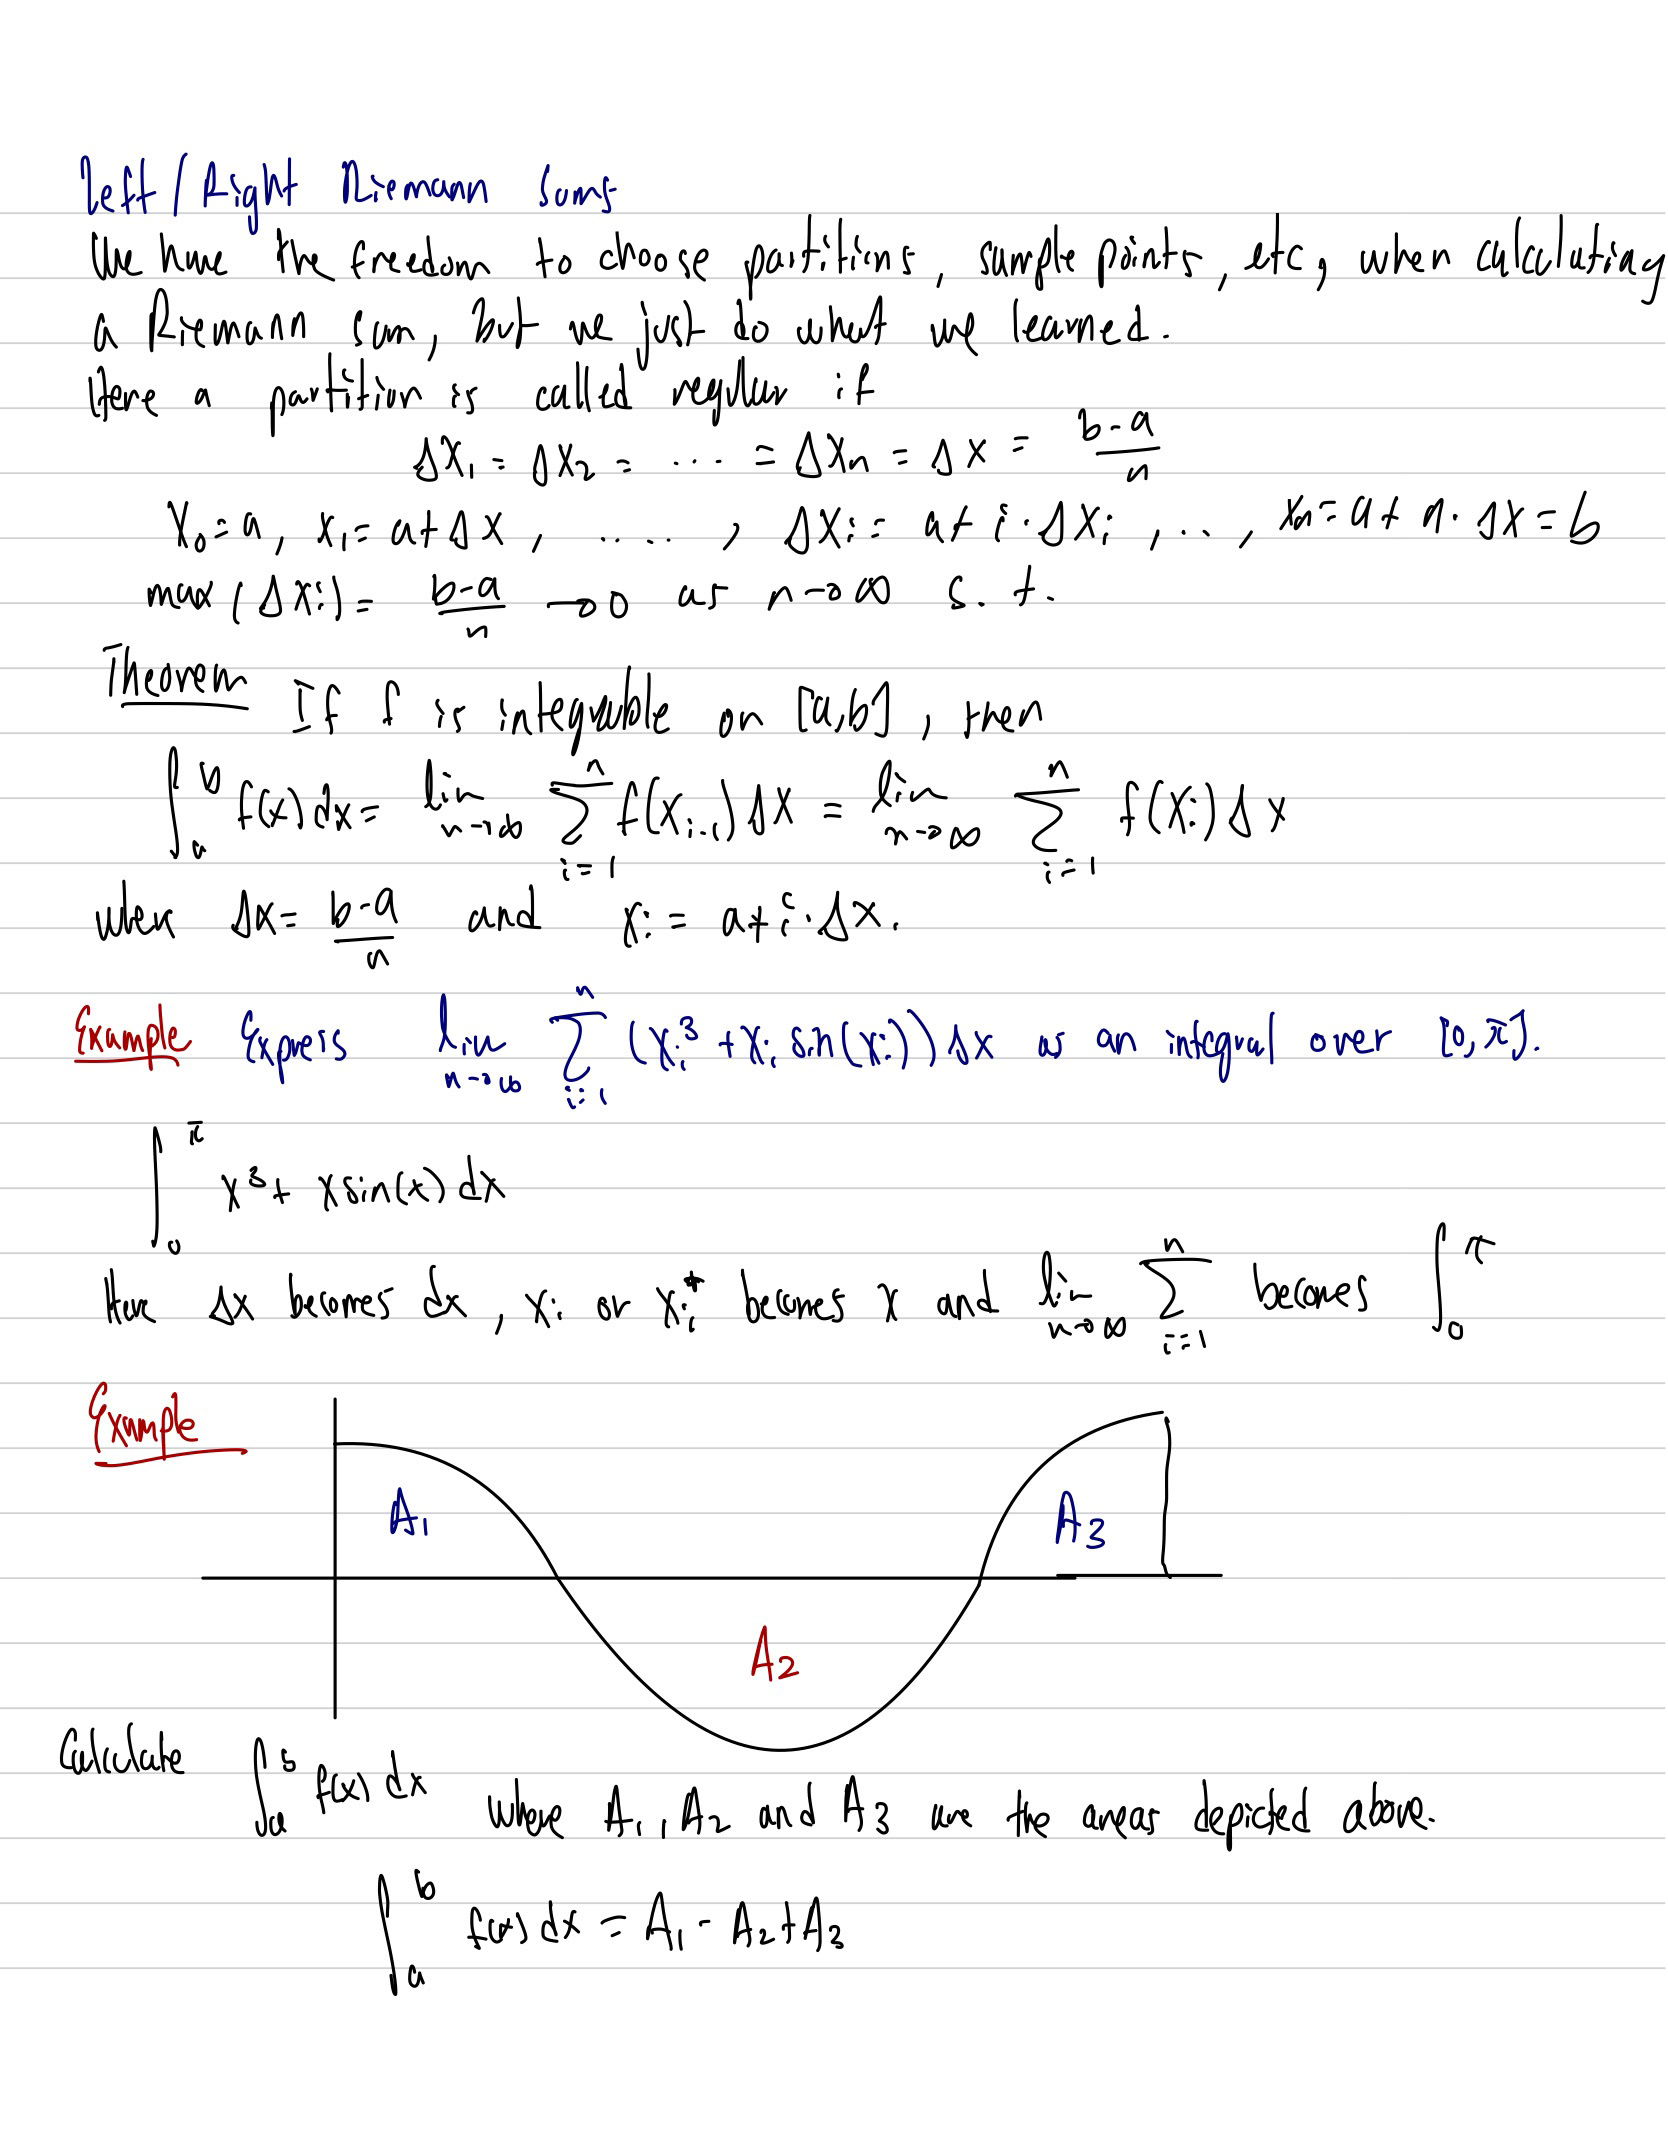 Left/Right Riemann Sums
We have the freedom to choose partitions, sample points, etc, when calculating
a Riemann sum, but we just do what we learned.
Here a partition is called regular if
Δx₁ = Δx₂ = ... = Δxₙ = Δx = (b-a)/n
x₀ = a, x₁ = a+Δx, ....., Δxᵢ = a+i·Δxᵢ, ..., xₙ = a+n·Δx = b
max(Δxᵢ) = (b-a)/n → 0 as n→∞ s.t.
Theorem If f is integrable on [a,b], then
∫ₐᵇ f(x)dx = lim n→∞ Σ i=1 n f(xᵢ₋₁)Δx = lim n→∞ Σ i=1 n f(xᵢ)Δx
when Δx = (b-a)/n and xᵢ = a+i·Δx.
Example Express lim n→∞ Σ i=1 n (xᵢ³ + xᵢ sin(xᵢ))Δx as an integral over [0,π].
∫₀^π x³ + x sin(x) dx
Here Δx becomes dx, xᵢ or xᵢ* becomes x and lim n→∞ Σ i=1 n becomes ∫₀^π
Example
A₁
A₃
A₂
Calculate ∫ₐᵇ f(x) dx where A₁, A₂ and A₃ are the areas depicted above.
∫ₐᵇ f(x) dx = A₁ - A₂ + A₃